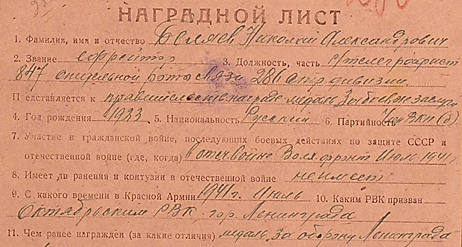 НАГРАДНОЙ ЛИСТ
1. Фамилия, имя и отчество Беляев Николай Александрович
2. Звание ефрейтор 3. Должность, часть телеграфист
847 отдельной роты связи 286 стр дивизии
Представляется к правительств. награде медаль За боевые заслуги
4. Год рождения 1933 5. Национальность Русский 6. Партийность ВКП(б)
7. Участие в гражданской войне, последующих боевых действиях по защите СССР и
отечественной войне (где, когда) в отеч. войне Волх. фронт Июль 1941
8. Имеет ли ранения и контузии в отечественной войне не имеет
9. С какого времени в Красной Армии 1941 г. Июль 10. Каким РВК призван
Октябрьским РВК гор. Ленинграда
11. Чем ранее награжден (за какие отличия) медаль За оборону Ленинграда